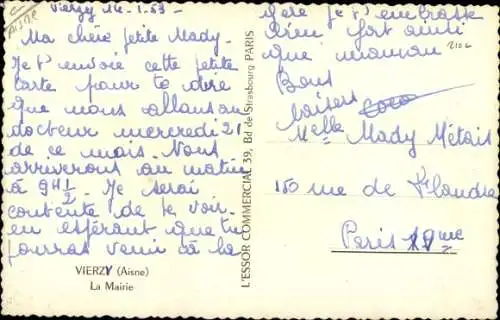 AISNE
Vierzy 14-1-53-
Ma chère petite Mady-
Je t'envoie cette petite
carte pour te dire
que nous allons au
docteur mercredi 21
de ce mois. Nous
arriverons au matin
à 9H 1/2. Je serai
contente de te voir
en espérant que tu
pourras venir à la
gare Je t'embrasse
bien fort ainsi
que maman
Bons
baisers
Coco
VIERZY (Aisne)
La Mairie
L'ESSOR COMMERCIAL 39, Bd de Strasbourg PARIS
Melle Mady Métais
150 rue de Flandre
Paris 19me